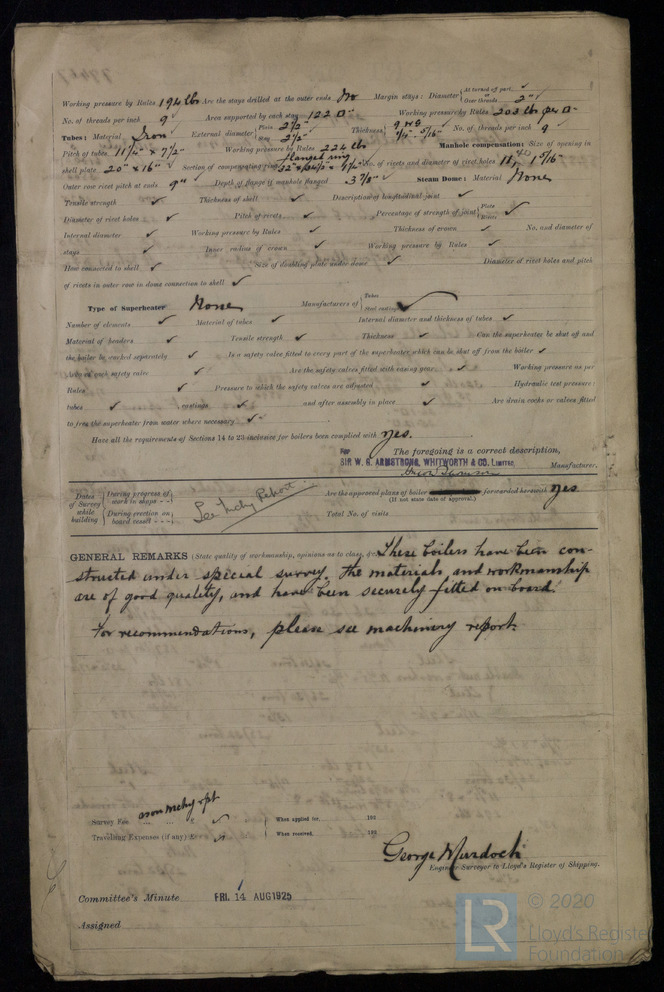 Working pressure by Rules 194 lbs Are the stays drilled at the outer ends No Margin stays: Diameter { At turned off part, ✓ or Over threads 2"
No. of threads per inch 9 Area supported by each stay 122 □" Working pressure by Rules 203 lb per □"
Tubes: Material Iron External diameter { Plain 2½" Stay 2½" Thickness { 9 WG ¼" 5/16" No. of threads per inch 9
Pitch of tubes 11¼" x 7½" Working pressure by Rules 224 lb Manhole compensation: Size of opening in
shell plate 20" x 16" Section of compensating ring flanged ring No. of rivets and diameter of rivet holes 1 5/16"
Outer row rivet pitch at ends 9" Depth of flange if manhole flanged 3⅞" Steam Dome: Material None
Tensile strength ✓ Thickness of shell ✓ Description of longitudinal joint ✓
Diameter of rivet holes ✓ Pitch of rivets ✓ Percentage of strength of joint { Plate Rivets ✓
Internal diameter ✓ Working pressure by Rules ✓ Thickness of crown ✓ No. and diameter of
stays ✓ Inner radius of crown ✓ Working pressure by Rules ✓
How connected to shell ✓ Size of doubling plate under dome ✓ Diameter of rivet holes and pitch
of rivets in outer row in dome connection to shell ✓
Type of Superheater None Manufacturers of { Tubes Steel castings ✓
Number of elements ✓ Material of tubes ✓ Internal diameter and thickness of tubes ✓
Material of headers ✓ Tensile strength ✓ Thickness ✓ Can the superheater be shut off and
the boiler be worked separately ✓ Is a safety valve fitted to every part of the superheater which can be shut off from the boiler ✓
Area of each safety valve ✓ Are the safety valves fitted with easing gear ✓ Working pressure as per
Rules ✓ Pressure to which the safety valves are adjusted ✓ Hydraulic test pressure:
tubes ✓ castings ✓ and after assembly in place ✓ Are drain cocks or valves fitted
to free the superheater from water where necessary ✓
Have all the requirements of Sections 14 to 23 inclusive for boilers been complied with Yes.
The foregoing is a correct description,
For SIR W. G. ARMSTRONG, WHITWORTH & CO. LIMITED, Manufacturer.
Dates of Survey while building { During progress of work in shops - - During erection on board vessel - - - } See Mchy Report. Are the approved plans of boiler forwarded herewith Yes
(If not state date of approval.)
Total No. of visits
GENERAL REMARKS (State quality of workmanship, opinions as to class, &c. These boilers have been con-
structed under special survey. the materials and workmanship
are of good quality, and have been securely fitted on board.
For recommendations, please see machinery report.
Survey Fee ... ... £ ✓ When applied for, 192
Travelling Expenses (if any) £ ✓ When received, 192
George Murdoch
Engineer Surveyor to Lloyd's Register of Shipping.
Committee's Minute FRI. 14 AUG 1925
Assigned
LR © 2020
Lloyd's Register
Foundation